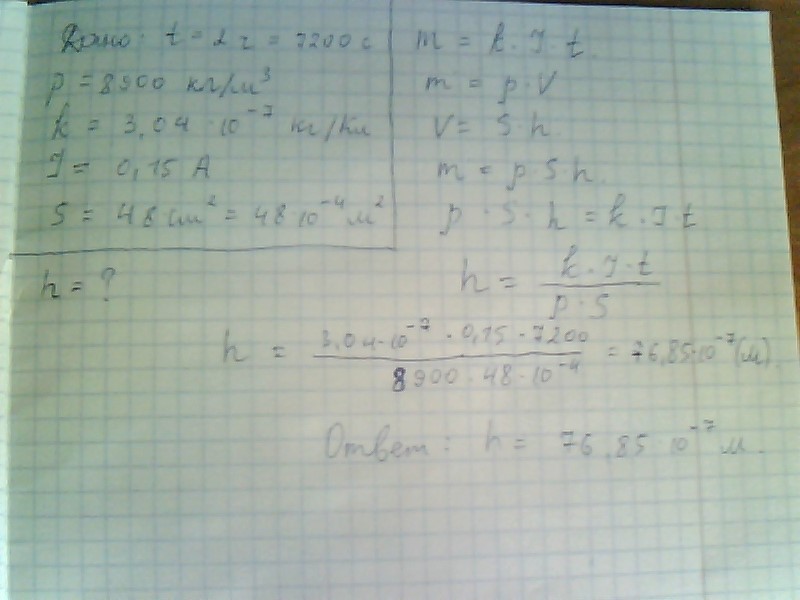 Дано: t = 2 ч = 7200 с
ρ = 8900 кг/м³
k = 3,04 · 10⁻⁷ кг/Кл
I = 0,15 А
S = 48 см² = 48 10⁻⁴ м²
h = ?
m = k · I · t
m = ρ · V
V = S · h
m = ρ · S · h
ρ · S · h = k · I · t
h = k · I · t / ρ · S
h = 3,04 · 10⁻⁷ · 0,15 · 7200 / 8900 · 48 · 10⁻⁴ = 76,85 · 10⁻⁷ (м)
Ответ: h = 76,85 10⁻⁷ м.